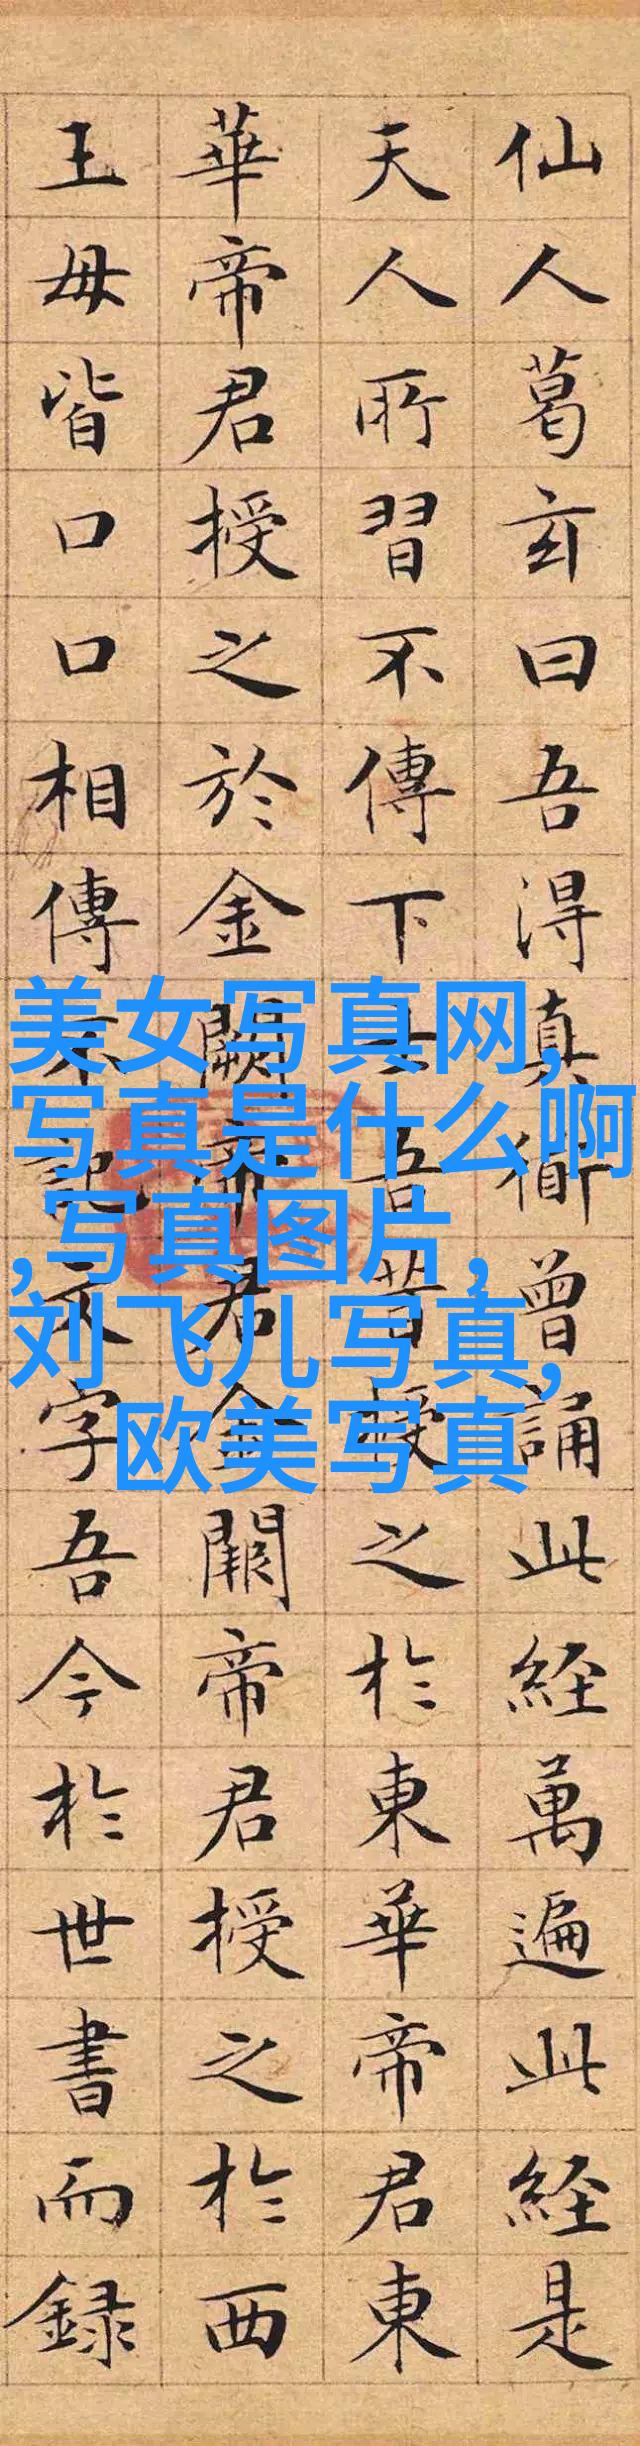 仙人葛玄曰吾得真衜曾誦此經萬遍此經是
天人所習不傳下士吾昔授之於東華帝君東
華帝君授之於金闕帝君金闕帝君授之於西
王母皆口口相傳不記文字吾今於世書而録
美女写真网,
写真是什么啊
,写真图片,
刘飞儿写真,
欧美写真